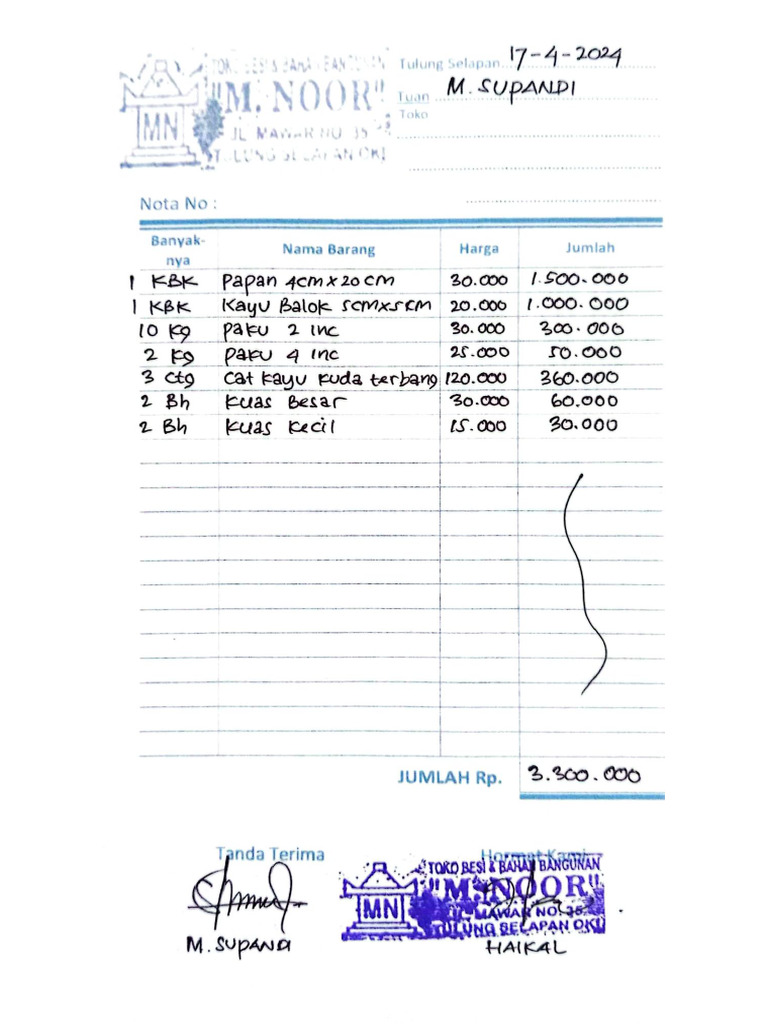 TOKO BESI & BAHAN BANGUNAN
"M. NOOR"
JL. MAWAR NO. 35
TULUNG SELAPAN OKI
MN
Tulung Selapan, 17-4-2024
Tuan M. SUPANDI
Toko
Nota No :
Banyak-nya Nama Barang Harga Jumlah
1 KBK Papan 4cm x 20 cm 30.000 1.500.000
1 KBK Kayu Balok 5cm x 5cm 20.000 1.000.000
10 Kg Paku 2 inc 30.000 300.000
2 Kg Paku 4 inc 25.000 50.000
3 Ctg Cat Kayu Kuda terbang 120.000 360.000
2 Bh Kuas Besar 30.000 60.000
2 Bh Kuas Kecil 15.000 30.000
JUMLAH Rp. 3.300.000
Tanda Terima Hormat Kami
TOKO BESI & BAHAN BANGUNAN
"M. NOOR"
MN
JL. MAWAR NO. 35
TULUNG SELAPAN OKI
M. SUPANDI HAIKAL